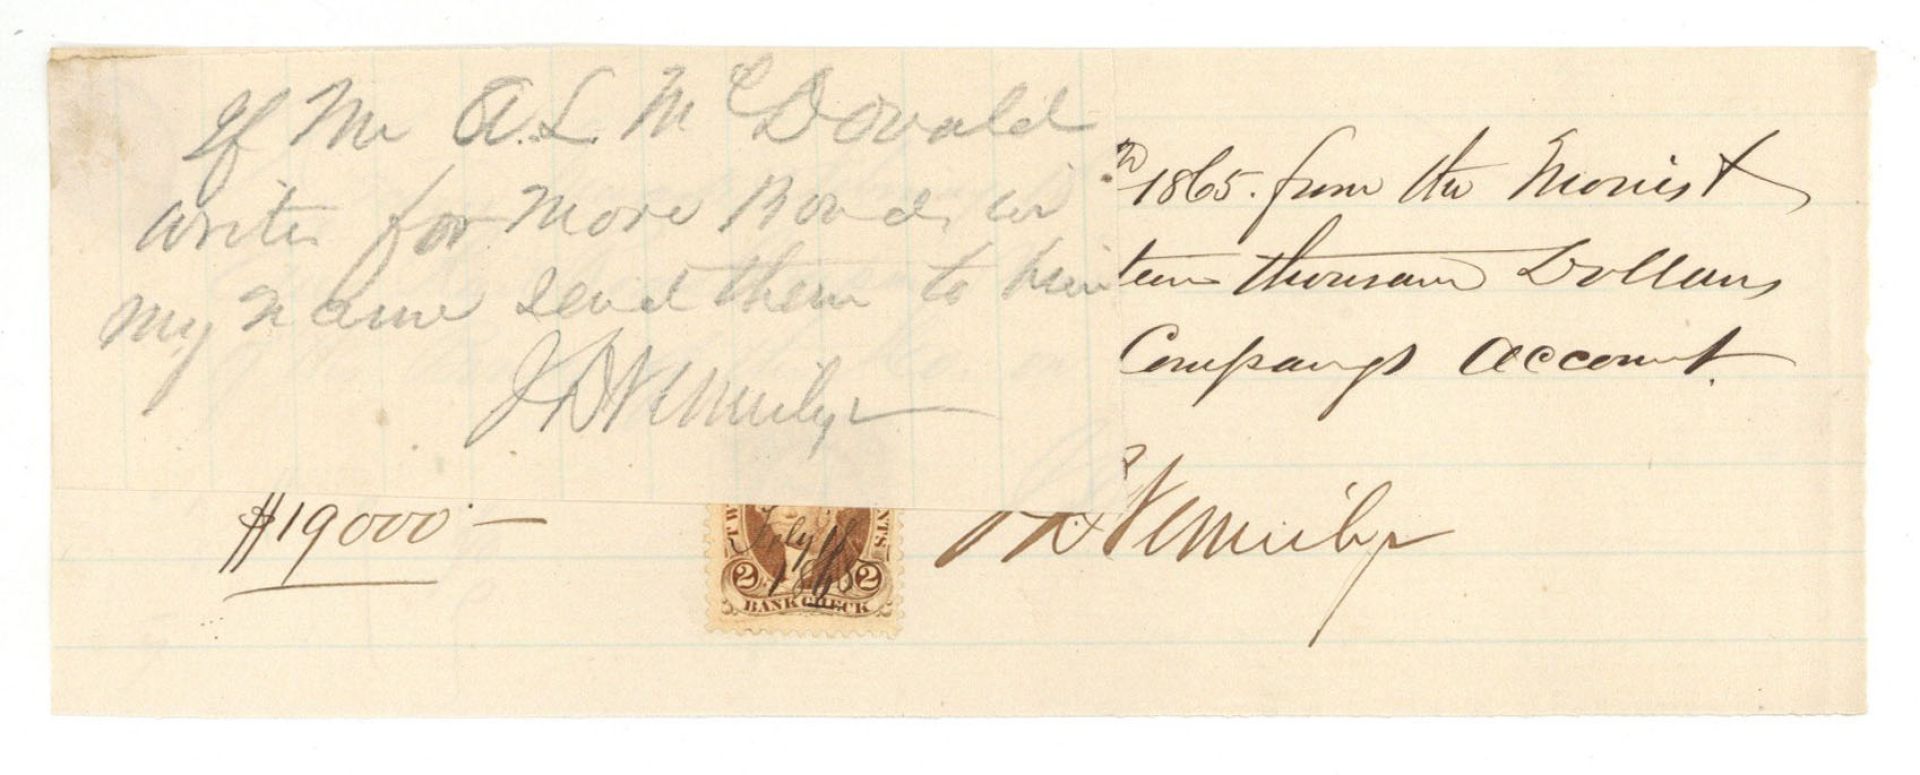 If Mr A. L. McDonald
writes for more Bonds in
my name send them to him
J D Vermilye
th 1865. from the Morris &
teen thousand Dollars
Companys account.
$19000 —
July
1865
2 2
BANK CHECK
D Vermilye